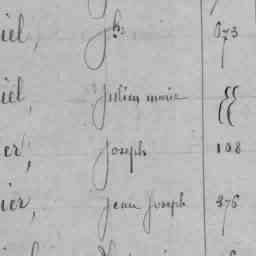 iel, Jh. 673
iel, Julien marie
er, Joseph 108
ier, Jean Joseph 276